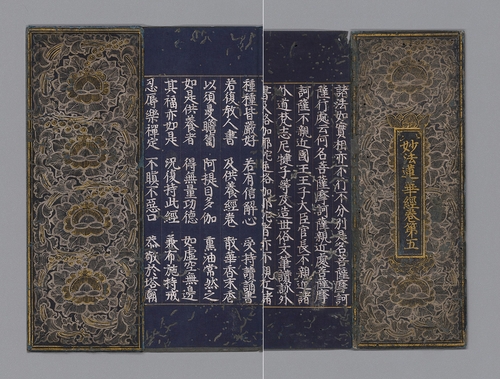 妙法蓮華經卷第五
諸法如實相亦不行不分別是名菩薩摩訶
薩行處云何名菩薩摩訶薩親近處菩薩摩
訶薩不親近國王王子大臣官長不親近諸
外道梵志尼揵子等及造世俗文筆讚詠外
書及路伽耶陀逆路伽耶陀者亦不親近諸
種種皆嚴好 若有信解心 受持讀誦書
若復教人書 及供養經卷 散華香末香
以須曼瞻蔔 阿提目多伽 薰油常然之
如是供養者 得無量功德 如虛空無邊
其福亦如是 況復持此經 兼布施持戒
忍辱樂禪定 不瞋不惡口 恭敬於塔廟